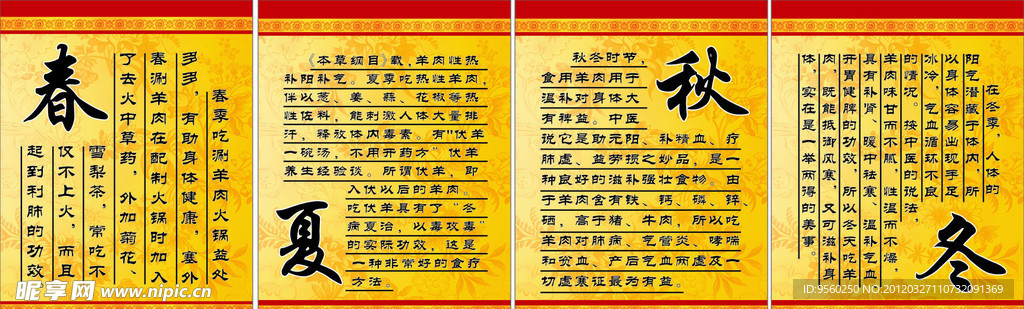 春
春季吃涮羊肉火锅益处
多多，有助身体健康，塞外
春涮羊肉在配制火锅时加入
了去火中草药，外加菊花、
雪梨茶，常吃不
仅不上火，而且
起到利肺的功效
《本草纲目》载，羊肉性热
补阳补气。夏季吃热性羊肉，
伴以葱、姜、蒜、花椒等热
性佐料，能刺激人体大量排
汗，释放体内毒素。有"伏羊
一碗汤，不用开药方"伏羊
养生经验谈。所谓伏羊，即
入伏以后的羊肉。
吃伏羊具有了"冬
病夏治，以毒攻毒"
的实际功效，这是
一种非常好的食疗
方法。
夏
秋
秋冬时节，
食用羊肉用于
温补对身体大
有裨益。中医
说它是助元阳、补精血、疗
肺虚、益劳损之妙品，是一
种良好的滋补强壮食物。由
于羊肉含有铁、钙、磷、锌、
硒，高于猪、牛肉，所以吃
羊肉对肺病、气管炎、哮喘
和贫血、产后气血两虚及一
切虚寒证最为有益。
在冬季，人体的
阳气潜藏于体内，所
以身体容易出现手足
冰冷，气血循环不良
的情况。按中医的说法，
羊肉味甘而不腻，性温而不燥，
具有补肾、暖中祛寒、温补气血
开胃健脾的功效，所以冬天吃羊
肉，既能抵御风寒，又可滋补身
体，实在是一举两得的美事。
冬
昵享网 www.nipic.cn
ID:9560250 NO:20120327110732091369